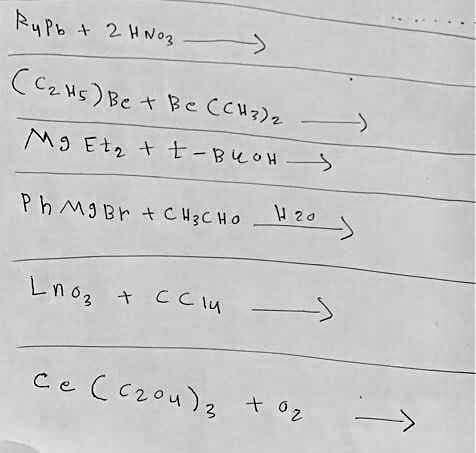 R4Pb + 2 HNO3 →
(C2H5)Be + Be(CH3)2 →
Mg Et2 + t-BuOH →
Ph MgBr + CH3CHO H2O →
LnO3 + CCl4 →
Ce(C2O4)3 + O2 →